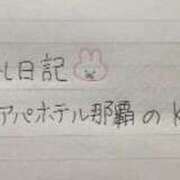 礼日記
アパホテル那覇のK